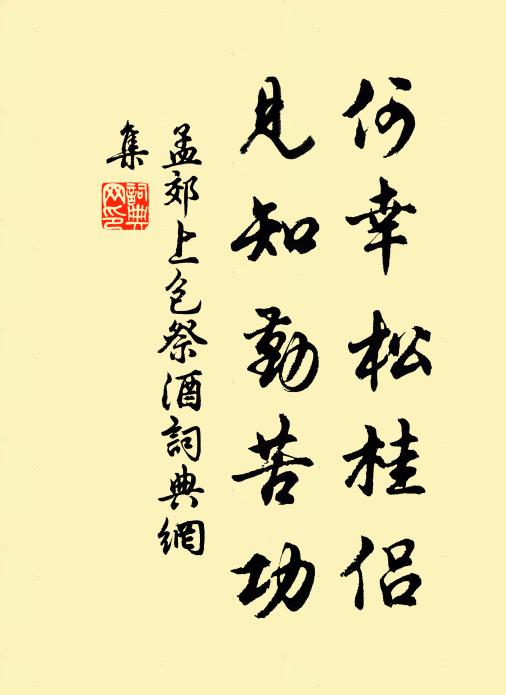 何幸松桂侣
见知勤苦功
孟郊上包祭酒詞典網
集
詞典
网印